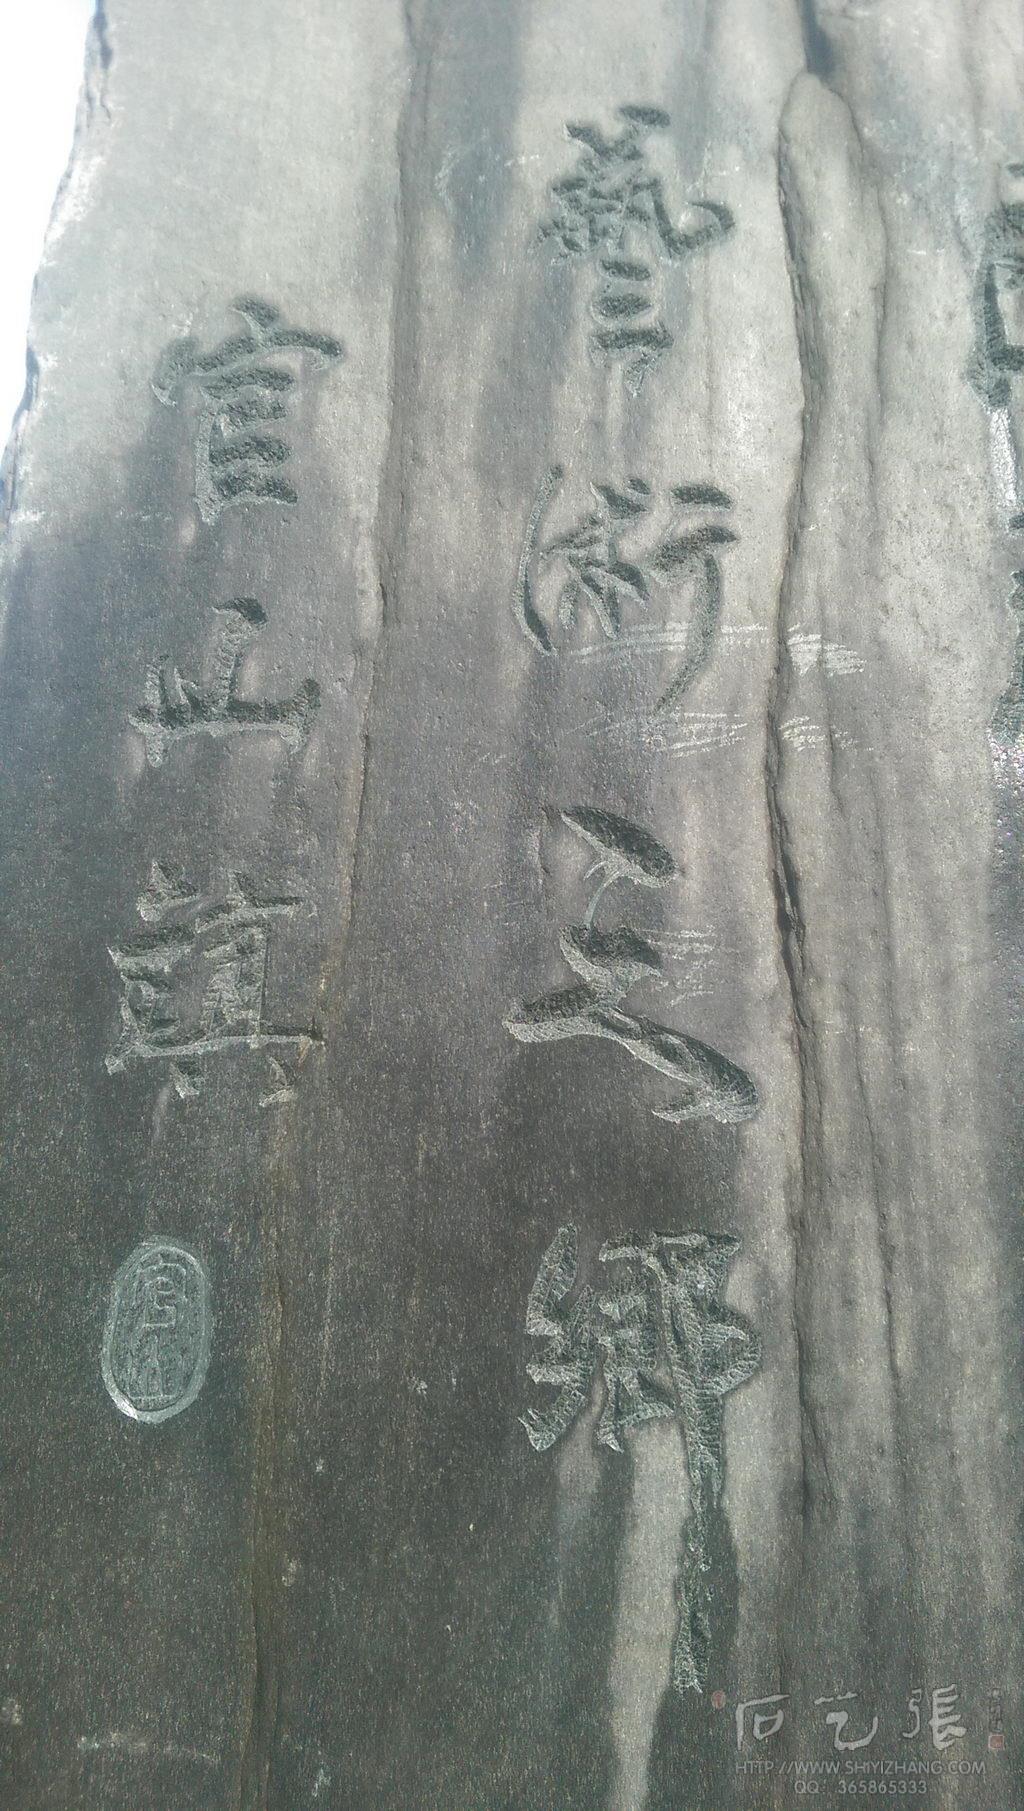 藝術之鄉
官山題
官山
石艺張
HTTP://WWW.SHIYIZHANG.COM
QQ: 365865333